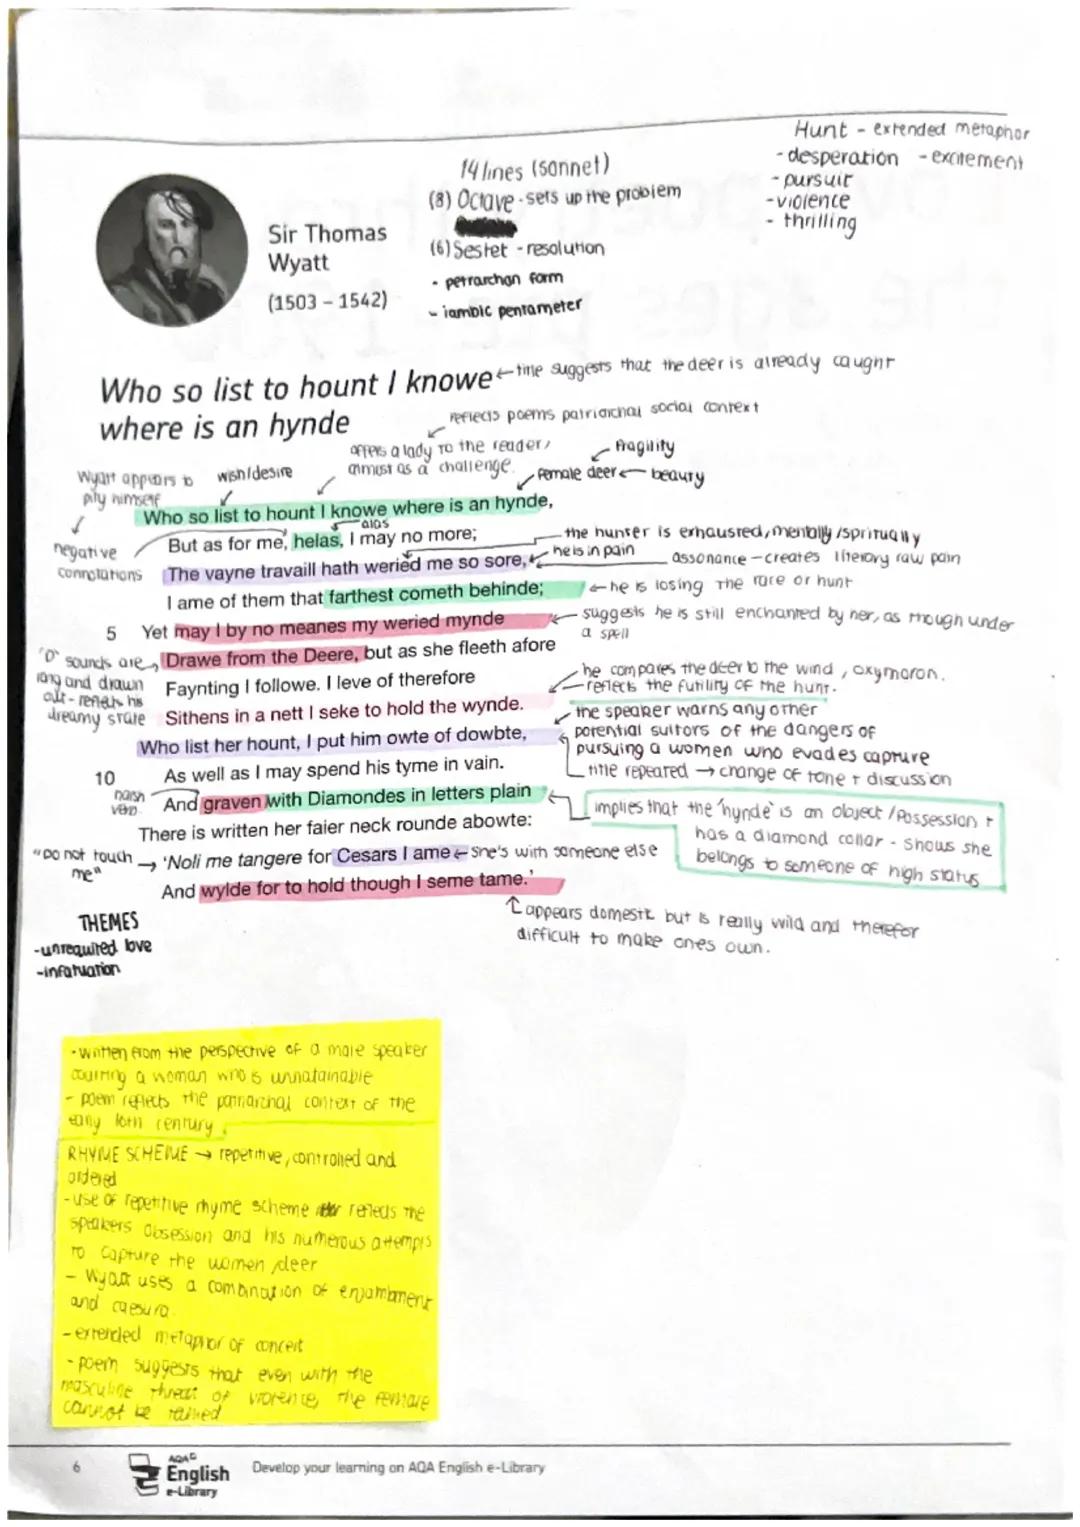 Hunt - extended metaphor
- desperation - excitement
- pursuit
- violence
- thrilling
14 lines (sonnet)
(8) Octave - sets up the problem
(6) Sestet - resolution
- petrarchan form
- iambic pentameter
Sir Thomas
Wyatt
(1503 – 1542)
Who so list to hount I knowe
where is an hynde
title suggests that the deer is already caught
reflects poems patriarchal social context
offers a lady to the reader,
almost as a challenge.
fragility
female deer
beauty
Wyatt appears to
pity himself
wish/desire
negative
connotations
Who so list to hount I knowe where is an hynde,
alas
But as for me, helas, I may no more;
the hunter is exhausted, mentally/spiritually
The vayne travaill hath weried me so sore,
he is in pain
assonance - creates literary raw pain
I ame of them that farthest cometh behinde;
he is losing the race or hunt
5 Yet may I by no meanes my weried mynde
suggests he is still enchanted by her, as though under
a spell
'D' sounds are
long and drawn
out - reflects his
dreamy state
Drawe from the Deere, but as she fleeth afore
Faynting I followe. I leve of therefore
he compares the deer to the wind, oxymoron.
- reflects the futility of the hunt.
Sithens in a nett I seke to hold the wynde.
the speaker warns any other
potential suitors of the dangers of
pursuing a women who evades capture
Who list her hount, I put him owte of dowbte,
title repeated → change of tone + discussion
10 As well as I may spend his tyme in vain.
harsh
verb
And graven with Diamondes in letters plain
implies that the 'hynde' is an object/possession +
has a diamond collar - shows she
belongs to someone of high status
There is written her faier neck rounde abowte:
"Do not touch
me"
'Noli me tangere for Cesars I ame
she's with someone else
And wylde for to hold though I seme tame.'
appears domestic but is really wild and therefor
difficult to make ones own.
THEMES
- unrequited love
- infatuation
- written from the perspective of a male speaker
courting a woman who is unnatainable
- poem reflects the patriarchal context of the
early 16th century.
RHYME SCHEME → repetitive, controlled and
ordered
- use of repetitive rhyme scheme reflects the
speakers obsession and his numerous attempts
to capture the women/deer
- Wyatt uses a combination of enjambment
and caesura.
- extended metaphor of conceit
- poem suggests that even with the
masculine threat of violence, the female
cannot be tamed
6
AQA
English
e-Library
Develop your learning on AQA English e-Library